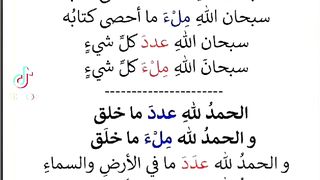 سبحان اللهِ مِلْءَ ما أحصى كتابُه
سبحان اللهِ عددَ كلِّ شيءٍ
سبحانَ اللهِ مِلْءَ كلِّ شيءٍ
----------------------
الحمدُ للهِ عددَ ما خلق
و الحمدُ لله مِلْءَ ما خلَق
و الحمدُ لله عدَدَ ما في الأرضِ والسماءِ